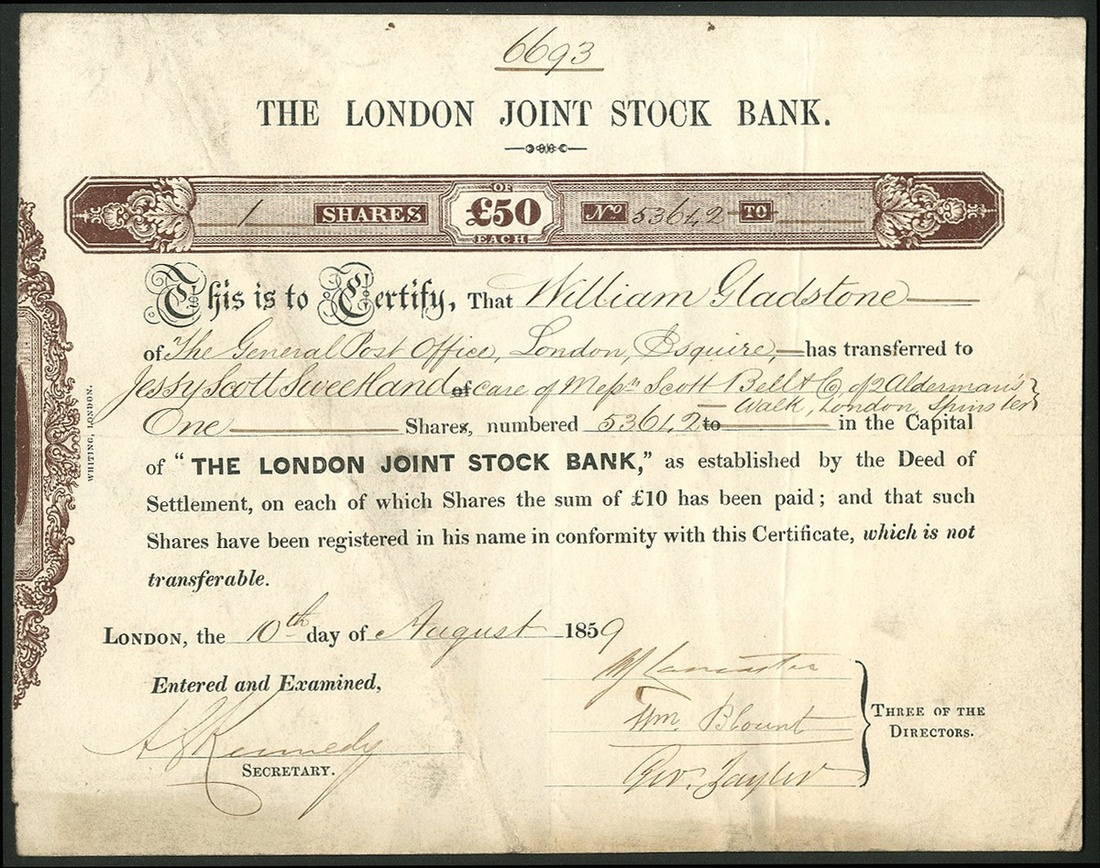 6693
THE LONDON JOINT STOCK BANK.
1 SHARES OF £50 EACH No 53642 TO
This is to Certify, That William Gladstone
of The General Post Office, London, Esquire, has transferred to
Jessy Scott Sweetland of care of Messrs Scott Bell & Co of 2 Alderman's
Walk, London, Spinster
One Shares, numbered 53642 to in the Capital
of "THE LONDON JOINT STOCK BANK," as established by the Deed of
Settlement, on each of which Shares the sum of £10 has been paid; and that such
Shares have been registered in his name in conformity with this Certificate, which is not
transferable.
LONDON, the 10th day of August 1859
Entered and Examined,
Lancaster
Wm. Blount
THREE OF THE
DIRECTORS.
Kennedy
SECRETARY.
Geo. Tayler
WHITING, LONDON.